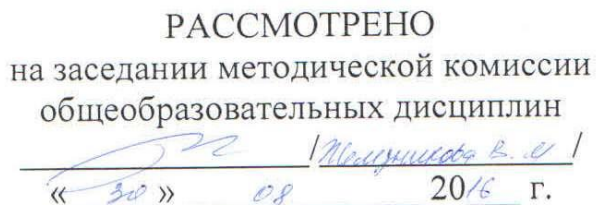 РАССМОТРЕНО
на заседании методической комиссии
общеобразовательных дисциплин
/ В. М /
« 30 » 08 2016 г.